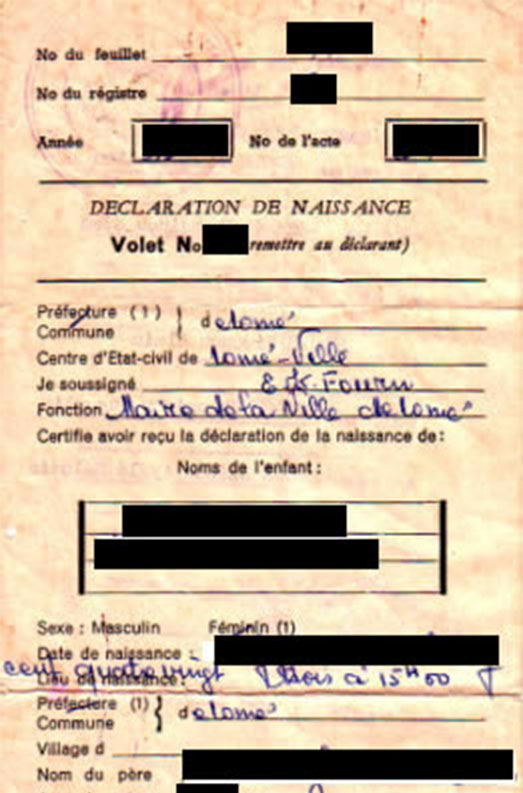 No du feuillet
No du régistre
Année No de l'acte
DECLARATION DE NAISSANCE
Volet No remettre au déclarant)
Préfecture (1) } de Lomé
Commune
Centre d'Etat-civil de Lomé-Ville
Je soussigné
Fonction Maire de la Ville de Lomé
Certifie avoir reçu la déclaration de la naissance de:
Noms de l'enfant:
Sexe : Masculin Féminin (1)
Date de naissance :
cent quatre vingt trois à 15H00
Lieu de naissance:
Préfecture (1) { de Lomé
Commune
Village d
Nom du père